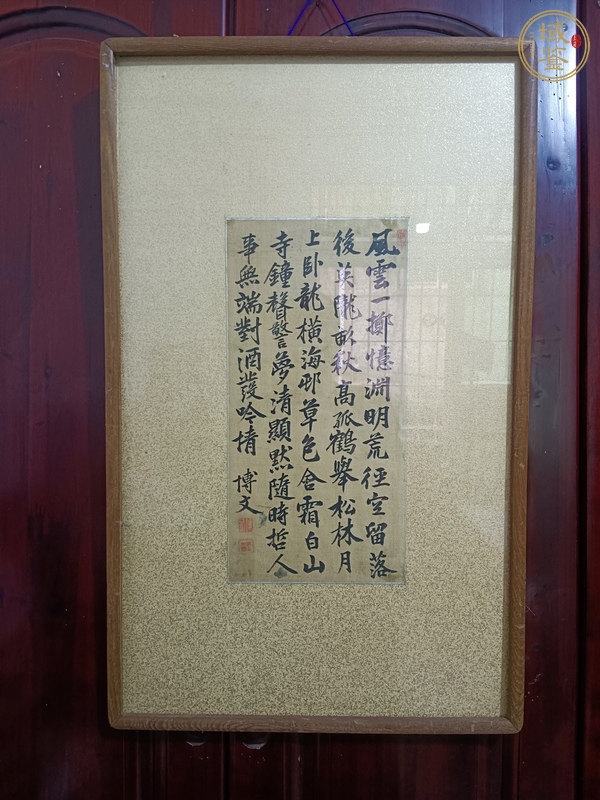 風雲一擲憶淵明荒徑空留落
後英隴畝秋高孤鶴舉松林月
上臥龍橫海邨草色含霜白山
寺鐘聲警夢清顯默隨時哲人
事無端對酒發吟情 博文